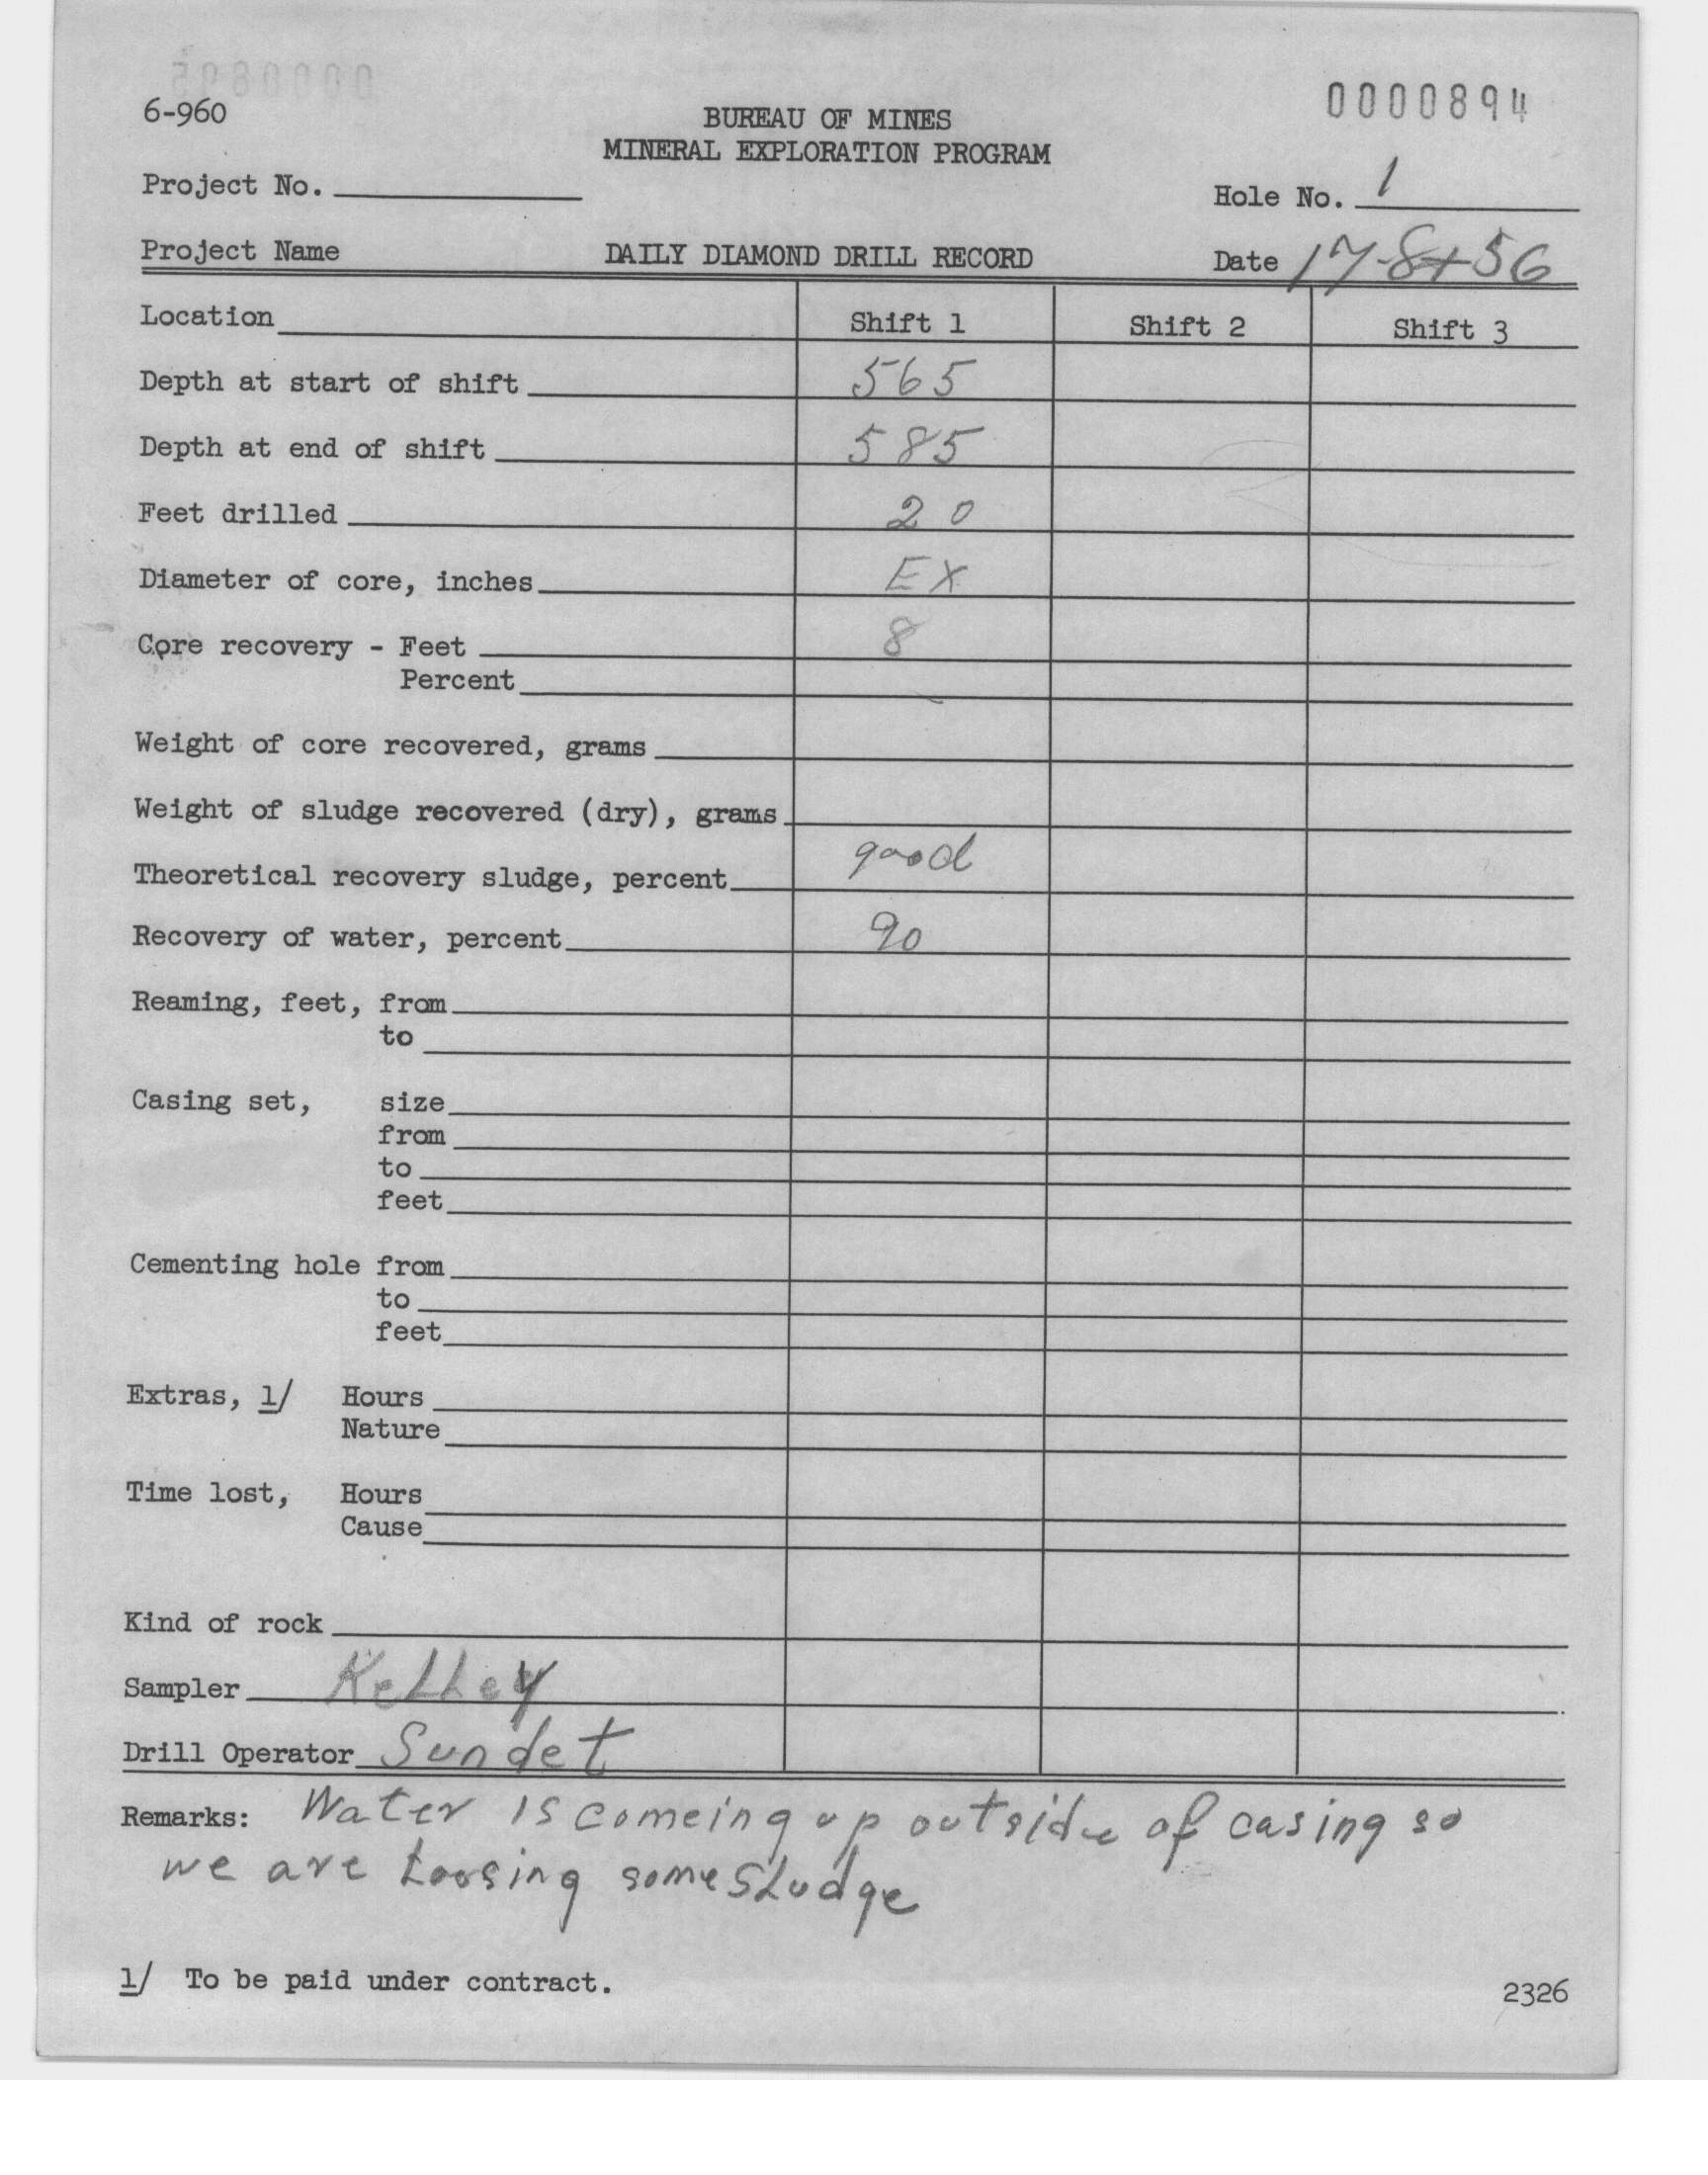 6-960
0000894
BUREAU OF MINES
MINERAL EXPLORATION PROGRAM
Project No.
Hole No. 1
Project Name DAILY DIAMOND DRILL RECORD Date 17-8-56
Location Shift 1 Shift 2 Shift 3
Depth at start of shift 565
Depth at end of shift 585
Feet drilled 20
Diameter of core, inches EX
Core recovery - Feet 8
Percent
Weight of core recovered, grams
Weight of sludge recovered (dry), grams
Theoretical recovery sludge, percent good
Recovery of water, percent 90
Reaming, feet, from
to
Casing set, size
from
to
feet
Cementing hole from
to
feet
Extras, 1/ Hours
Nature
Time lost, Hours
Cause
Kind of rock
Sampler Kelley
Drill Operator Sundet
Remarks: Water is comeing up outside of casing so
we are Loosing some sludge
1/ To be paid under contract.
2326